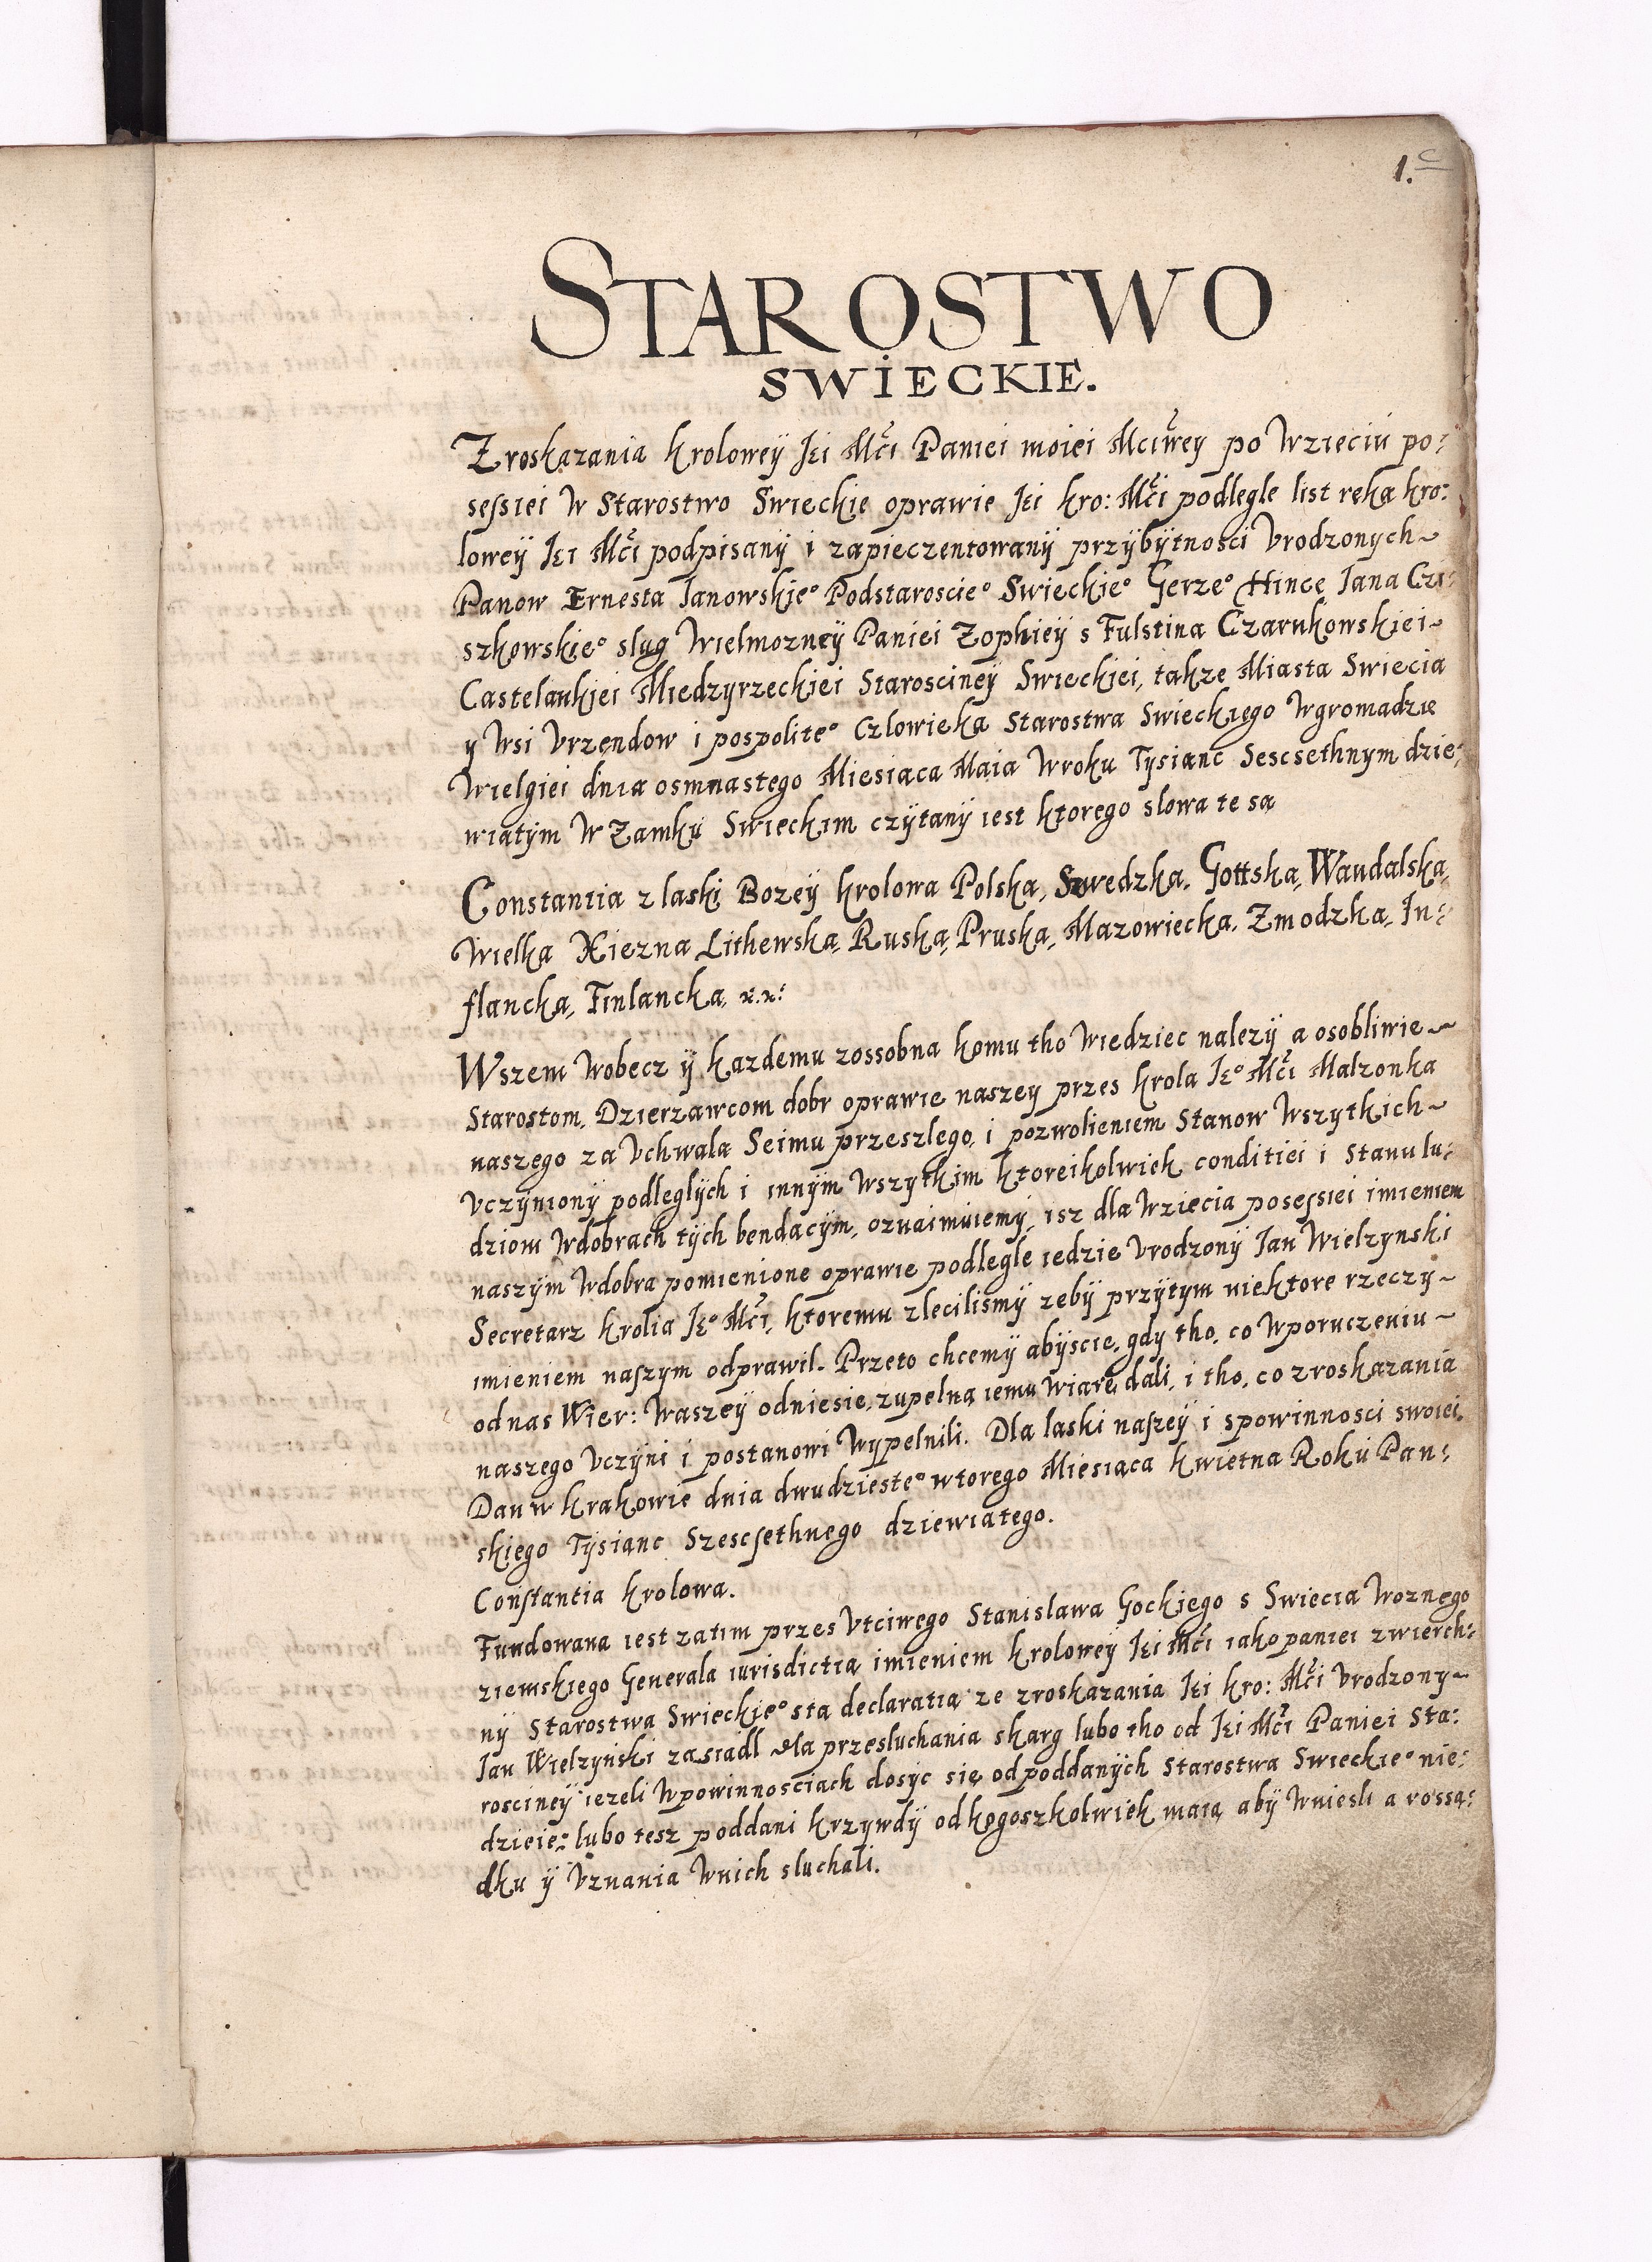 1. c
STAROSTWO
SWIECKIE.
Z roskazania Krolowey Jei Mći Paniei moiei Mciwey po wzieciu po:
sessiei w Starostwo Swieckie oprawie Jei kro: Mći podlegle list ręką kro:
lowey Jei Mći podpisany i zapieczentowany przy bytnosci Vrodzonych~
Panow Ernesta Janowskie° Podstaroscie° Swieckie° Gerze° Hince Jana Czi:
szkowskie° sług Wielmozney Paniei Zophiey s Fulstina Czarnkowskiei~
Castelankiei Miedzyrzeckiei Starosciney Swieckiei, takze Miasta Swiecia
y Wsi Vrzendow i pospolite° człowieka Starostwa Swieckiego w gromadzie
wielgiei dnia osmnastego Miesiąca Maia w roku Tysianc Sescsethnym dzie:
wiatym w Zamku Swieckim czytany iest ktorego słowa te są
Constantia z laski Bozey Krolowa Polska, Szwedzka, Gottska, Wandalska,
Wielka Xiezna Lithewska, Ruska, Pruska, Mazowiecka, Zmodzka, In:
flancka, Finlancka, &.&:
Wszem wobecz y kazdemu zossobna komu tho wiedziec nalezy a osobliwie~
Starostom, Dzierzawcom dobr oprawie naszey przes krola Je° Mći Malzonka
naszego za Vchwala Seimu przeszlego, i pozwolieniem Stanow wszytkich~
Vczyniony podleglych i innym wszytkim ktoreikolwiek conditiei i stanu lu:
dziom w dobrach tych bendacym, oznaimuiemy, isz dla wziecia posessiei imieniem
naszym w dobra pomienione oprawie podlegle iedzie Vrodzony Jan Wielzynski
Secretarz Krolia Je° Mći, ktoremu zlecilismy zeby przytym niektore rzeczy~
imieniem naszym odprawil. Przeto chcemy abyscie, gdy tho, co w poruczeniu~
od nas Wier: waszey odniesie, zupelną iemu wiarę dali, i tho, co z roskazania
naszego Vczyni i postanowi wypelnili. Dla laski naszey i spowinnosci swoiei.
Dan w Krakowie dnia dwudzieste° wtorego Miesiąca Kwietna Roku Pan:
skiego Tysianc Szescsethnego dziewiatego.
Constantia Krolowa.
Fundowana iest zatim przes Vtciwego Stanislawa Gockiego s Swiecia Woznego
ziemskiego Generala iurisdictia imieniem Krolowey Jei Mći iako paniei zwierch:
ny Starostwa Swieckie° s tą declaratią ze z roskazania Jei kro: Mći Vrodzony~
Jan Wielzyński zasiadl dla przesluchania skarg lubo tho od Jei Mći Paniei Sta:
rosciney iezeli w powinnosciach dosyc się od poddanych Starostwa Swieckie° nie:
dzieie: lubo tesz poddani krzywdy od kogoszkolwiek maią aby wniesli a rossą:
dku y Vznania w nich sluchali.